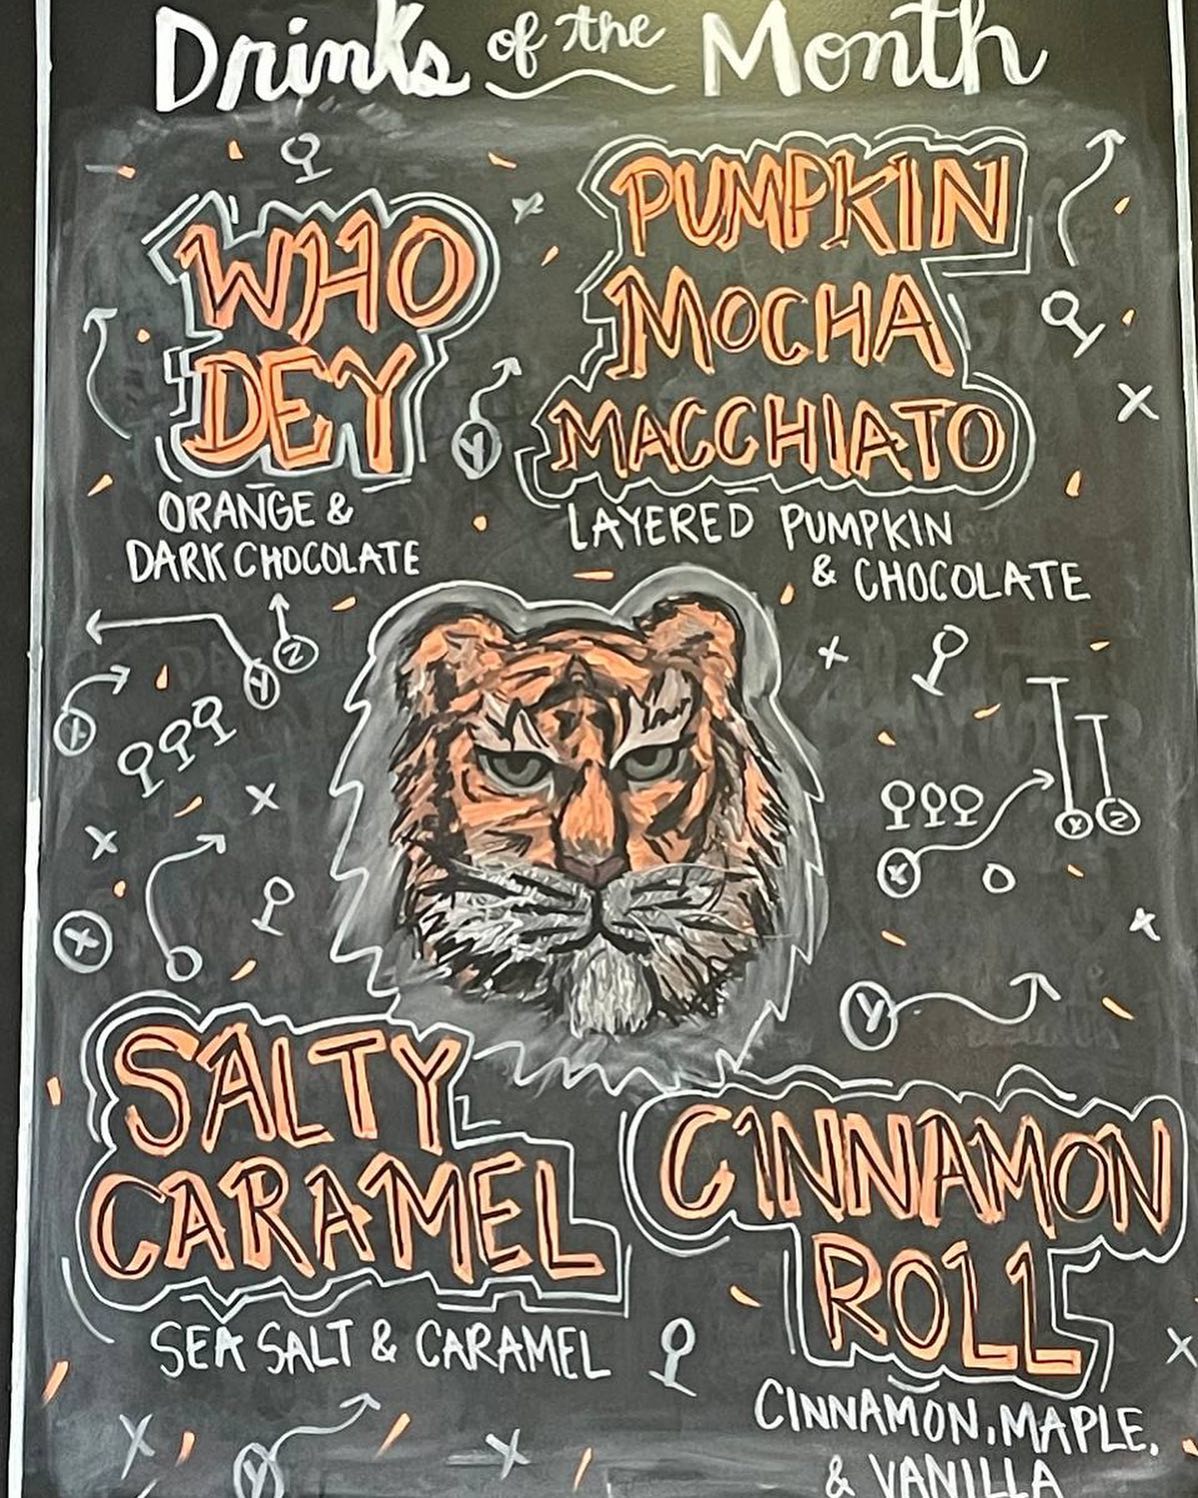 Drinks of the Month
WHO
DEY
ORANGE &
DARK CHOCOLATE
PUMPKIN
MOCHA
MACCHIATO
LAYERED PUMPKIN
& CHOCOLATE
Y
Z
Y
X
Y
Z
X
X
Y
SALTY
CARAMEL
SEA SALT & CARAMEL
CINNAMON
ROLL
CINNAMON, MAPLE,
& VANILLA
Y